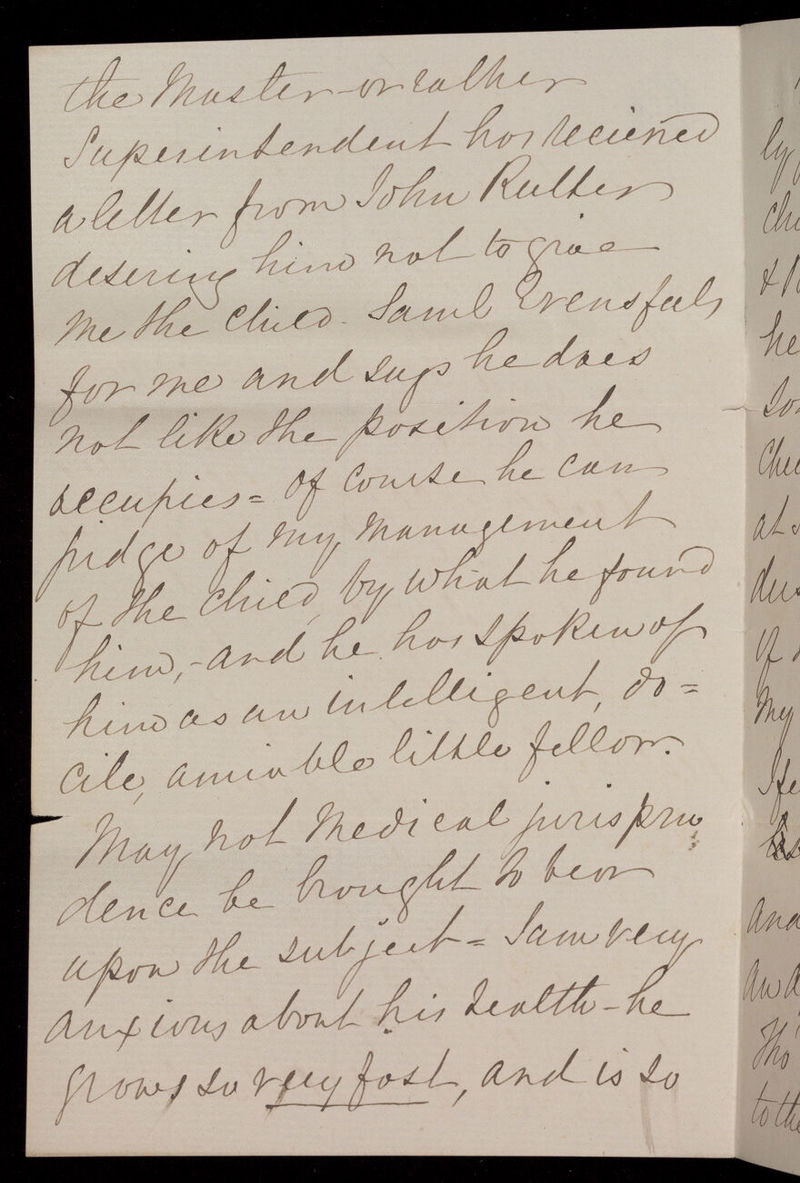 the Master - or rather
Superintendent has recieved
a letter from John Rutter
desering him not to give
me the child. Saml Evens feels
for me and says he does
not like the position he
occupies = Of course he can
judge of my management
of the child, by what he found
him, - and he has spoken of
him as an intelligent, do=
cile, amiable little fellow.
May not Medical jurispru
dence be brought to bear
upon the subject = I am very
anxious about his health - he
grows so very fast, and is so
ly
he
at
My
and
Tho
to the